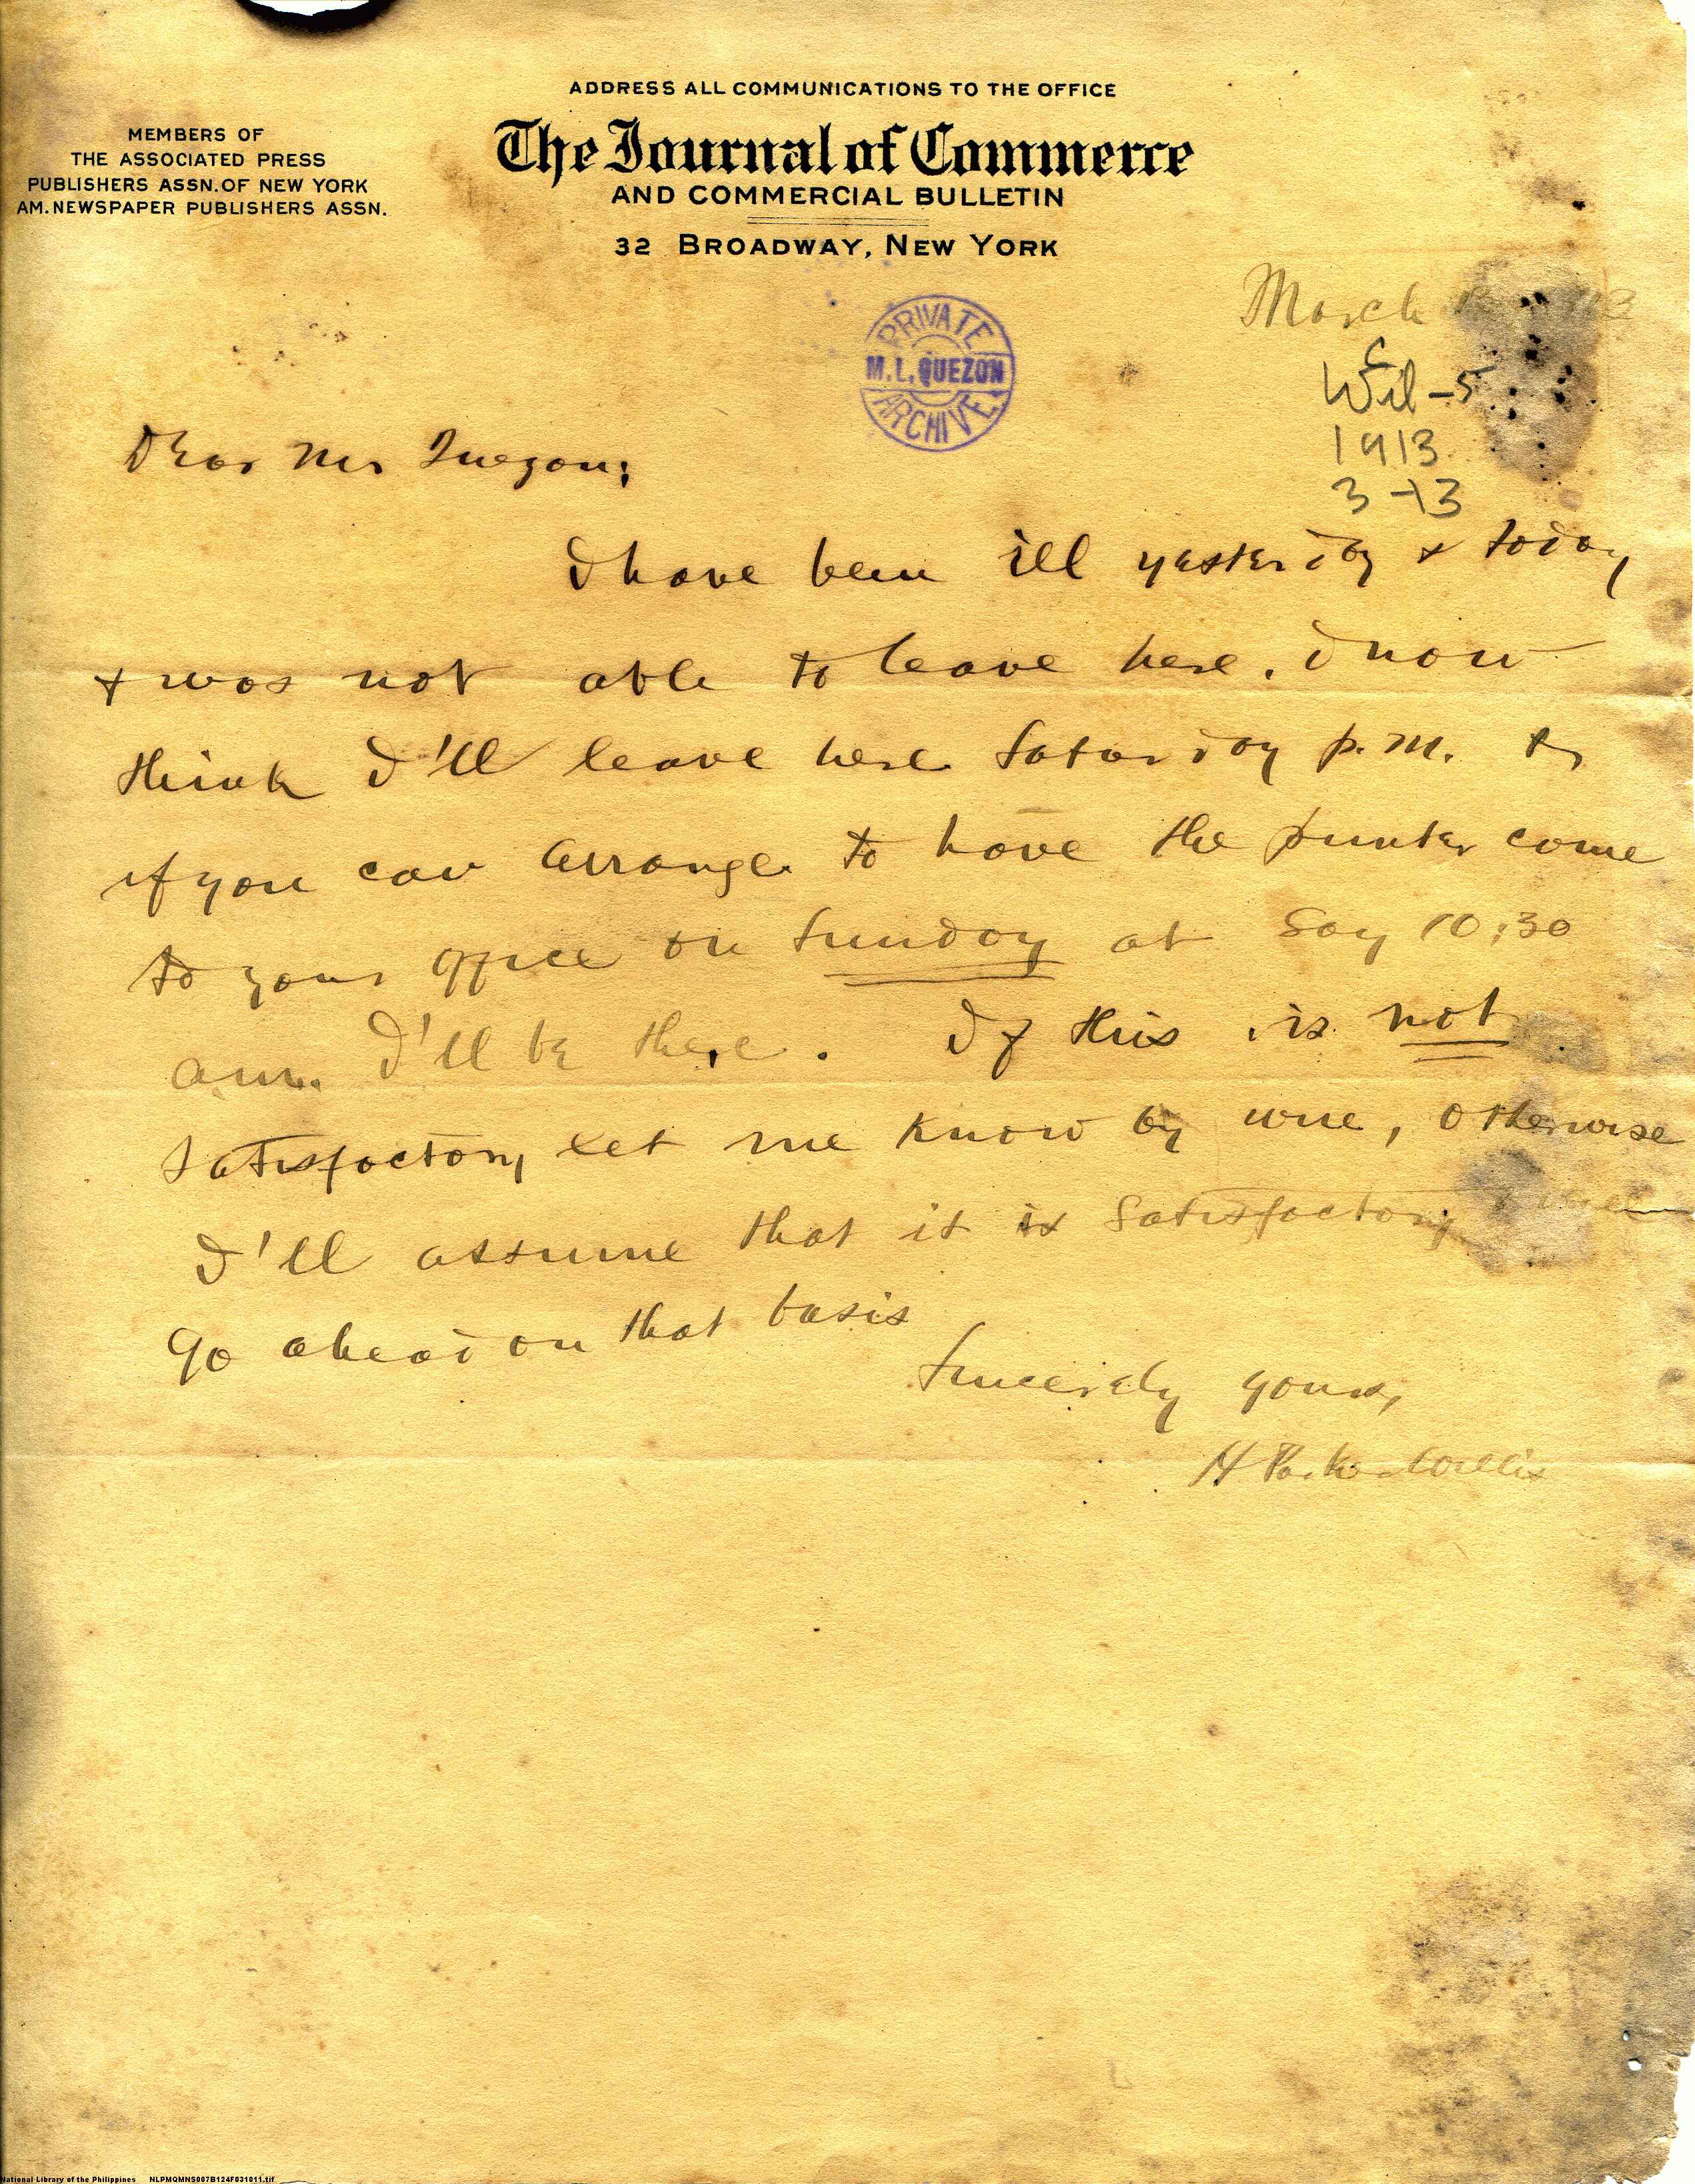 ADDRESS ALL COMMUNICATIONS TO THE OFFICE
MEMBERS OF
THE ASSOCIATED PRESS
PUBLISHERS ASSN. OF NEW YORK
AM. NEWSPAPER PUBLISHERS ASSN.
The Journal of Commerce
AND COMMERCIAL BULLETIN
32 BROADWAY, NEW YORK
March
PRIVATE
M. L. QUEZON
ARCHIVE
C
Wil-5
1913
3-13
Dear Mr Quezon;
I have been ill yesterday & today
& was not able to leave here. I now
think I'll leave here Saturday p.m. &
if you can arrange to have the printer come
to your office on Sunday at say 10:30
am. I'll be there. If this is not
satisfactory let me know by wire, otherwise
I'll assume that it is satisfactory &
go ahead on that basis
Sincerely yours,
H Parker Willis
National Library of the Philippines NLPMQMNS007B124F031011.tif